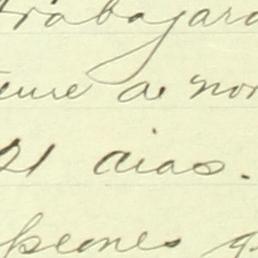 trabajaro
eme a nom
21 dias.
peones q